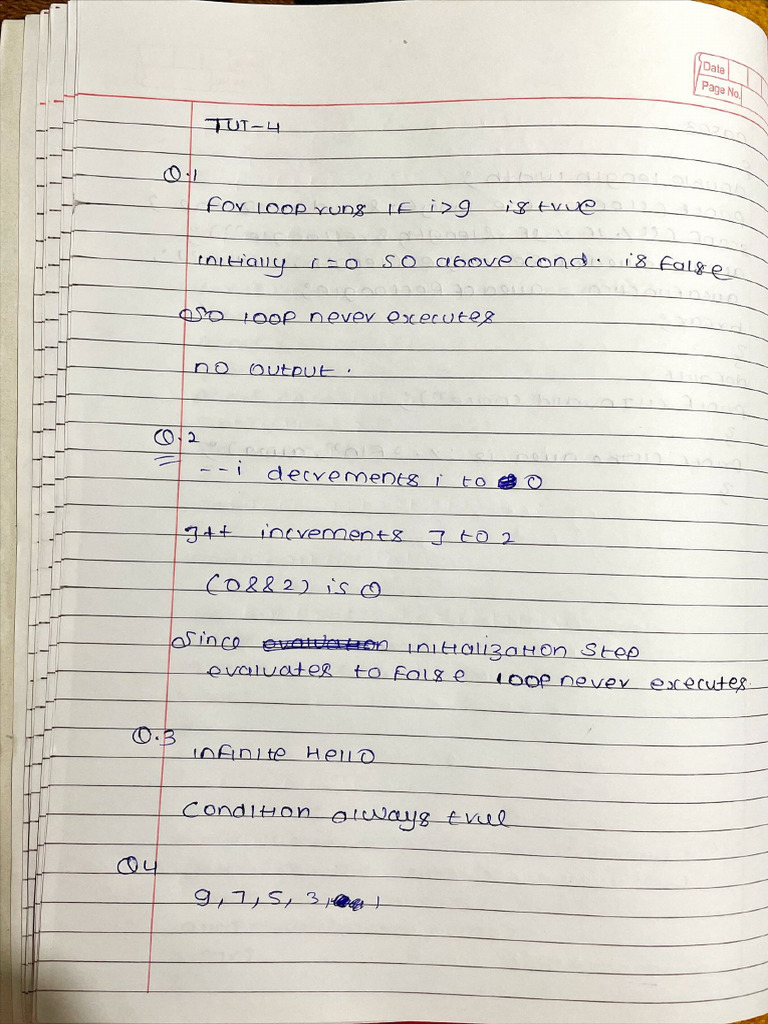 Date
Page No.
TUT-4
Q.1
for loop runs if i>9 is true
initially i=0 so above cond. is false
so loop never executes
no output.
Q.2
--i decrements i to 0
J++ increments J to 2
(0&&2) is 0
Since initialization step
evaluates to false loop never executes.
Q.3
infinite Hello
Condition always true
Q4
9, 7, 5, 3, 1